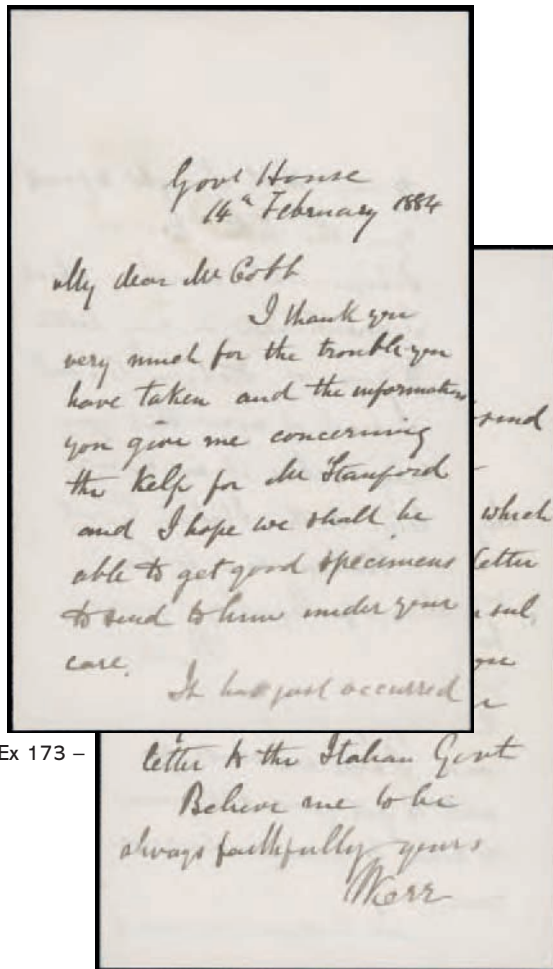 Govt House
14th February 1884
My dear Mr Cobb
I thank you
very much for the trouble you
have taken and the information
you give me concerning
the Kelp for Mr Stanford
and I hope we shall be
able to get good specimens
to send to him under your
care.
It has just occurred
send
which
letter
letter to the Italian Govt
Believe me to be
always faithfully yours
Kerr
Ex 173 –